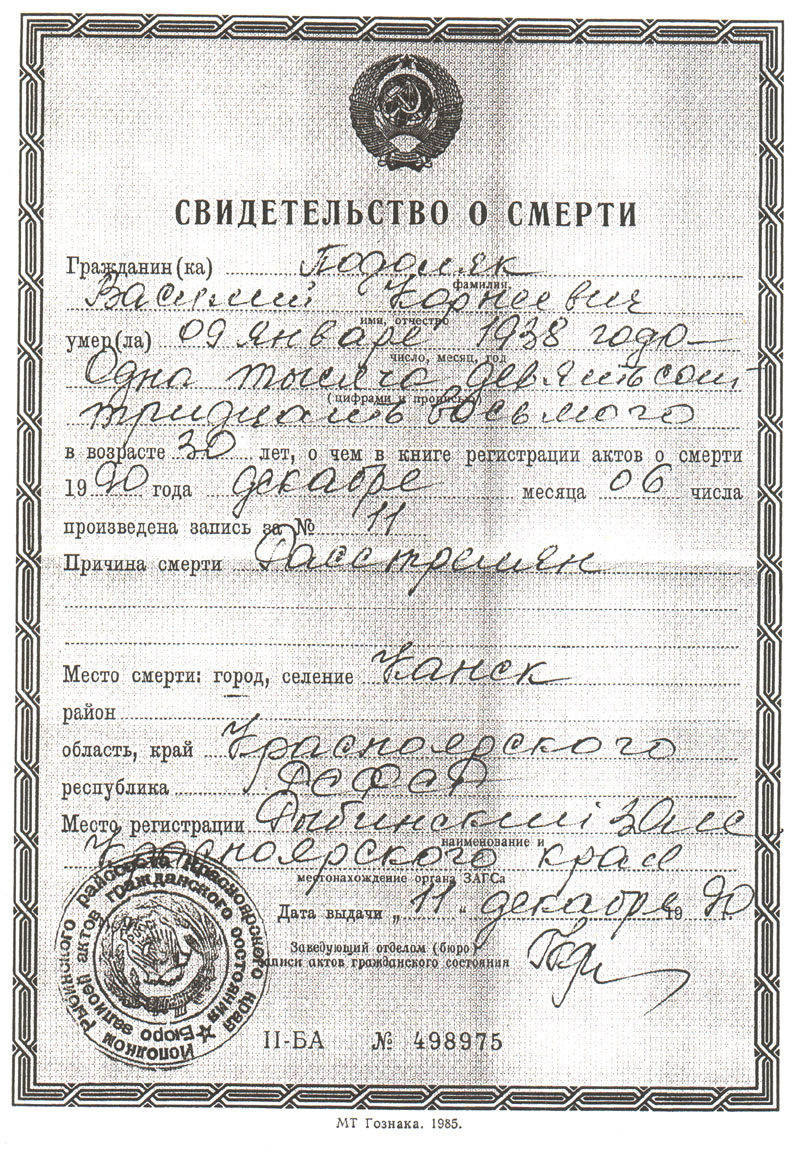 СВИДЕТЕЛЬСТВО О СМЕРТИ
Гражданин(ка) Подоляк
фамилия,
Василий Корнеевич
имя, отчество
умер(ла) 09 января 1938 года
число, месяц, год
Одна тысяча девятьсот
(цифрами и прописью)
тридцать восьмого
в возрасте 30 лет, о чем в книге регистрации актов о смерти
1990 года декабре месяца 06 числа
произведена запись за № 11
Причина смерти Расстрелян
Место смерти: город, селение Канск
район
область, край Красноярского
республика РСФСР
Место регистрации Рыбинский ЗАГС
наименование и
Красноярского края
местонахождение органа ЗАГСа
Дата выдачи „11“ декабря 1990 г.
Заведующий отделом (бюро)
записи актов гражданского состояния
Исполком Рыбинского райсовета Красноярского края
Бюро записей актов гражданского состояния
II-БА № 498975
МТ Гознака. 1985.